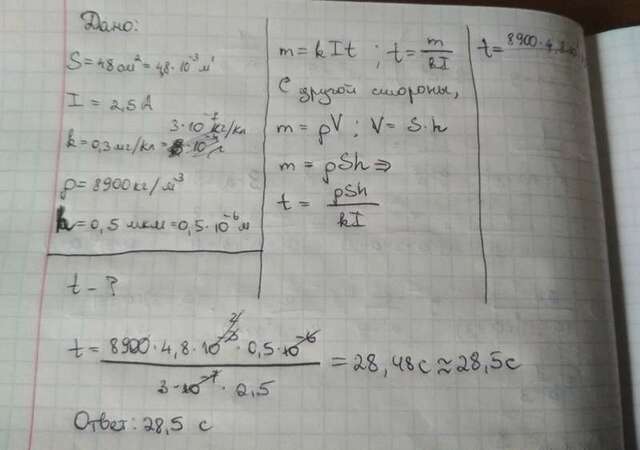 Дано:
S = 48 см² = 4,8·10⁻³ м²
I = 2,5 А
k = 0,3 мг/Кл = 3·10⁻⁷ кг/Кл
ρ = 8900 кг/м³
h = 0,5 мкм = 0,5·10⁻⁶ м
t - ?
m = kIt ; t = m/kI
С другой стороны,
m = ρV ; V = S·h
m = ρSh ⇒
t = ρSh/kI
t = 8900·4,8·10
t = 8900·4,8·10⁻³·0,5·10⁻⁶/3·10⁻⁷·2,5 = 28,48с ≈ 28,5с
Ответ: 28,5 с